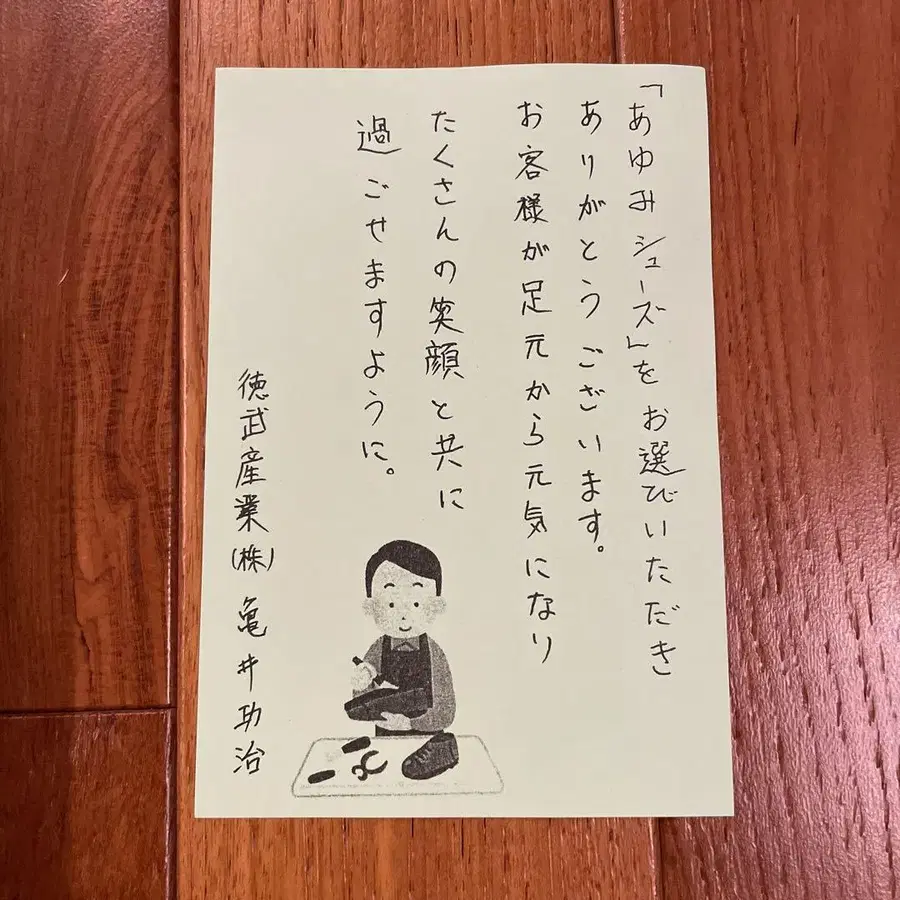 「あゆみシューズ」をお選びいただき
ありがとうございます。
お客様が足元から元気になり
たくさんの笑顔と共に
過ごせますように。
徳武産業(株) 亀井功治